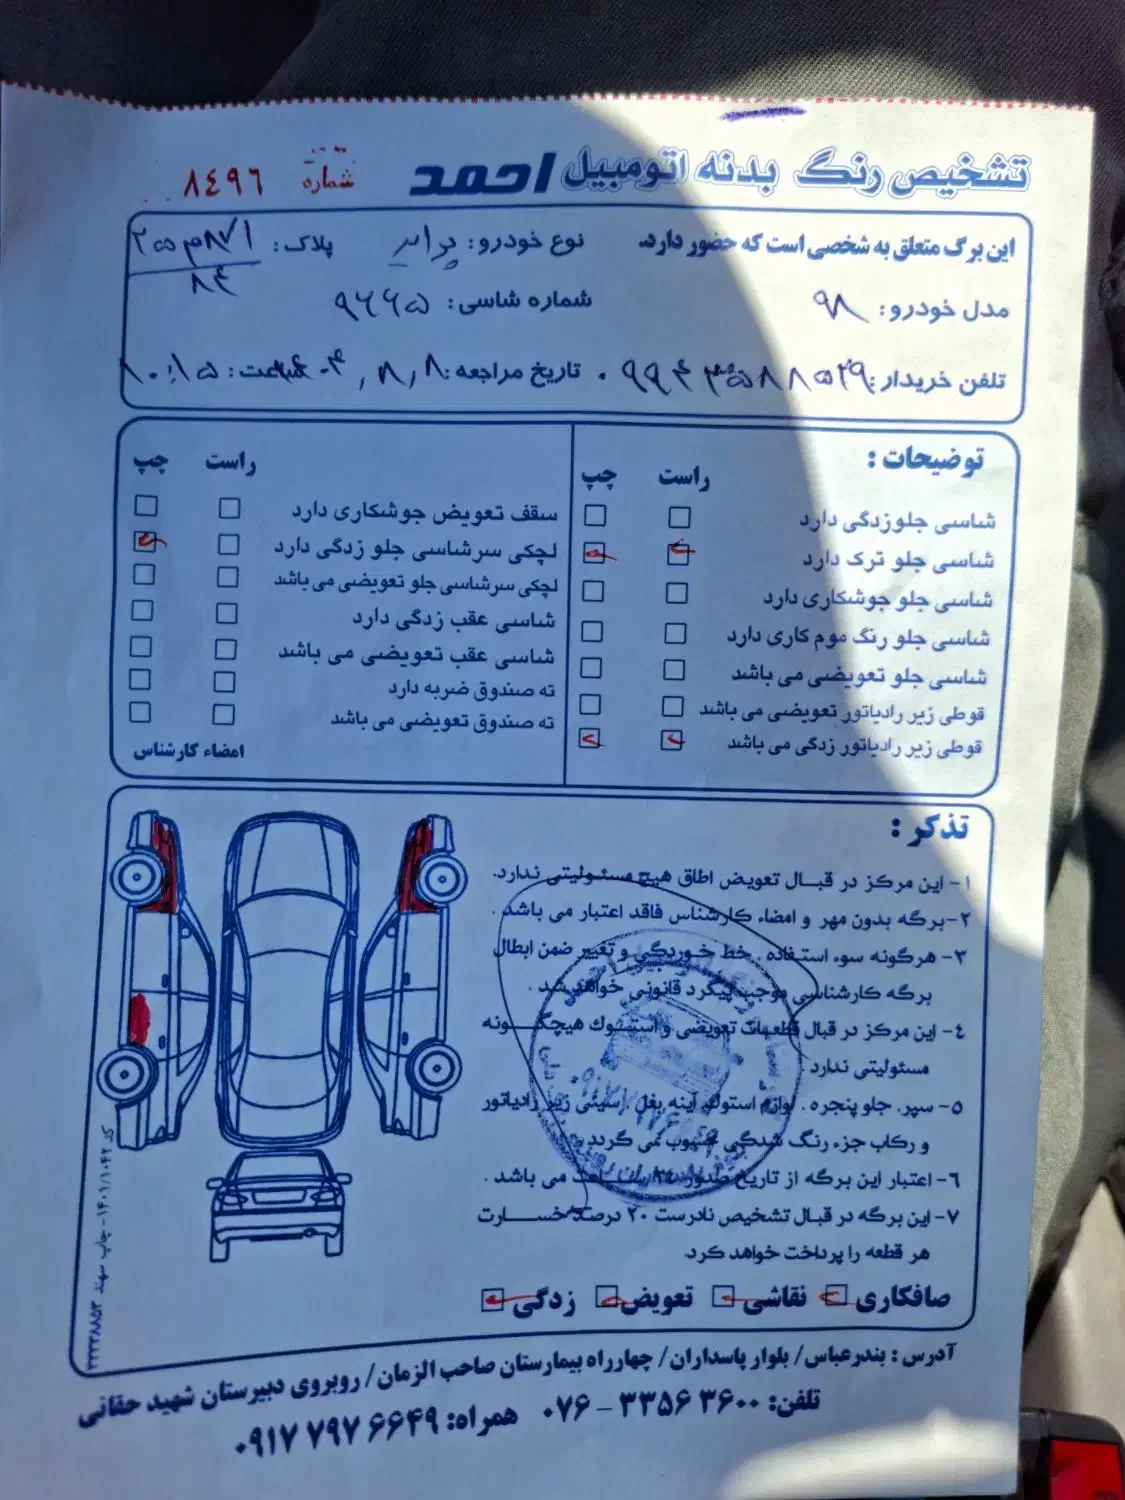 تشخیص رنگ بدنه اتومبیل احمد
شماره ۸۴۹۶
این برگ متعلق به شخصی است که حضور دارد.
نوع خودرو: پراید
پلاک:
۸۴
مدل خودرو: ۹۸
شماره شاسی: ۹۶۶۵
تلفن خریدار:
تاریخ مراجعه: ۸,۸,
ساعت: ۱۰:۱۵
توضیحات :
راست چپ
شاسی جلوزدگی دارد
شاسی جلو ترک دارد
شاسی جلو جوشکاری دارد
شاسی جلو رنگ موم کاری دارد
شاسی جلو تعویضی می باشد
قوطی زیر رادیاتور تعویضی می باشد
قوطی زیر رادیاتور زدگی می باشد
راست چپ
سقف تعویض جوشکاری دارد
لچکی سرشاسی جلو زدگی دارد
لچکی سرشاسی جلو تعویضی می باشد
شاسی عقب زدگی دارد
شاسی عقب تعویضی می باشد
ته صندوق ضربه دارد
ته صندوق تعویضی می باشد
امضاء کارشناس
تذکر :
۱- این مرکز در قبال تعویض اطاق هیچ مسئولیتی ندارد.
۲-برگه بدون مهر و امضاء کارشناس فاقد اعتبار می باشد.
۳- هرگونه سوء استفاده . خط خوردگی و تغییر ضمن ابطال
برگه کارشناسی موجب پیگرد قانونی خواهد شد .
۴- این مرکز در قبال قطعات تعویضی و استوک هیچگونه
مسئولیتی ندارد .
۵- سپر. جلو پنجره . لوازم استوک. آینه بغل . سینی زیر رادیاتور
و رکاب جزء رنگ شدگی محسوب نمی گردد
۶- اعتبار این برگه از تاریخ صدور ۲۴ ساعت می باشد .
۷- این برگه در قبال تشخیص نادرست ۲۰ درصد خسارت
هر قطعه را پرداخت خواهد کرد.
صافکاری نقاشی تعویض زدگی
کد ۱۴۰۱/۱۰۴۲- چاپ سهند ۳۲۲۳۸۸۵۳
آدرس : بندرعباس/ بلوار پاسداران/ چهارراه بیمارستان صاحب الزمان/ روبروی دبیرستان شهید حقانی
تلفن: ۳۳۵۶۳۶۰۰ - ۰۷۶ همراه: ۰۹۱۷ ۷۹۷ ۶۶۴۹